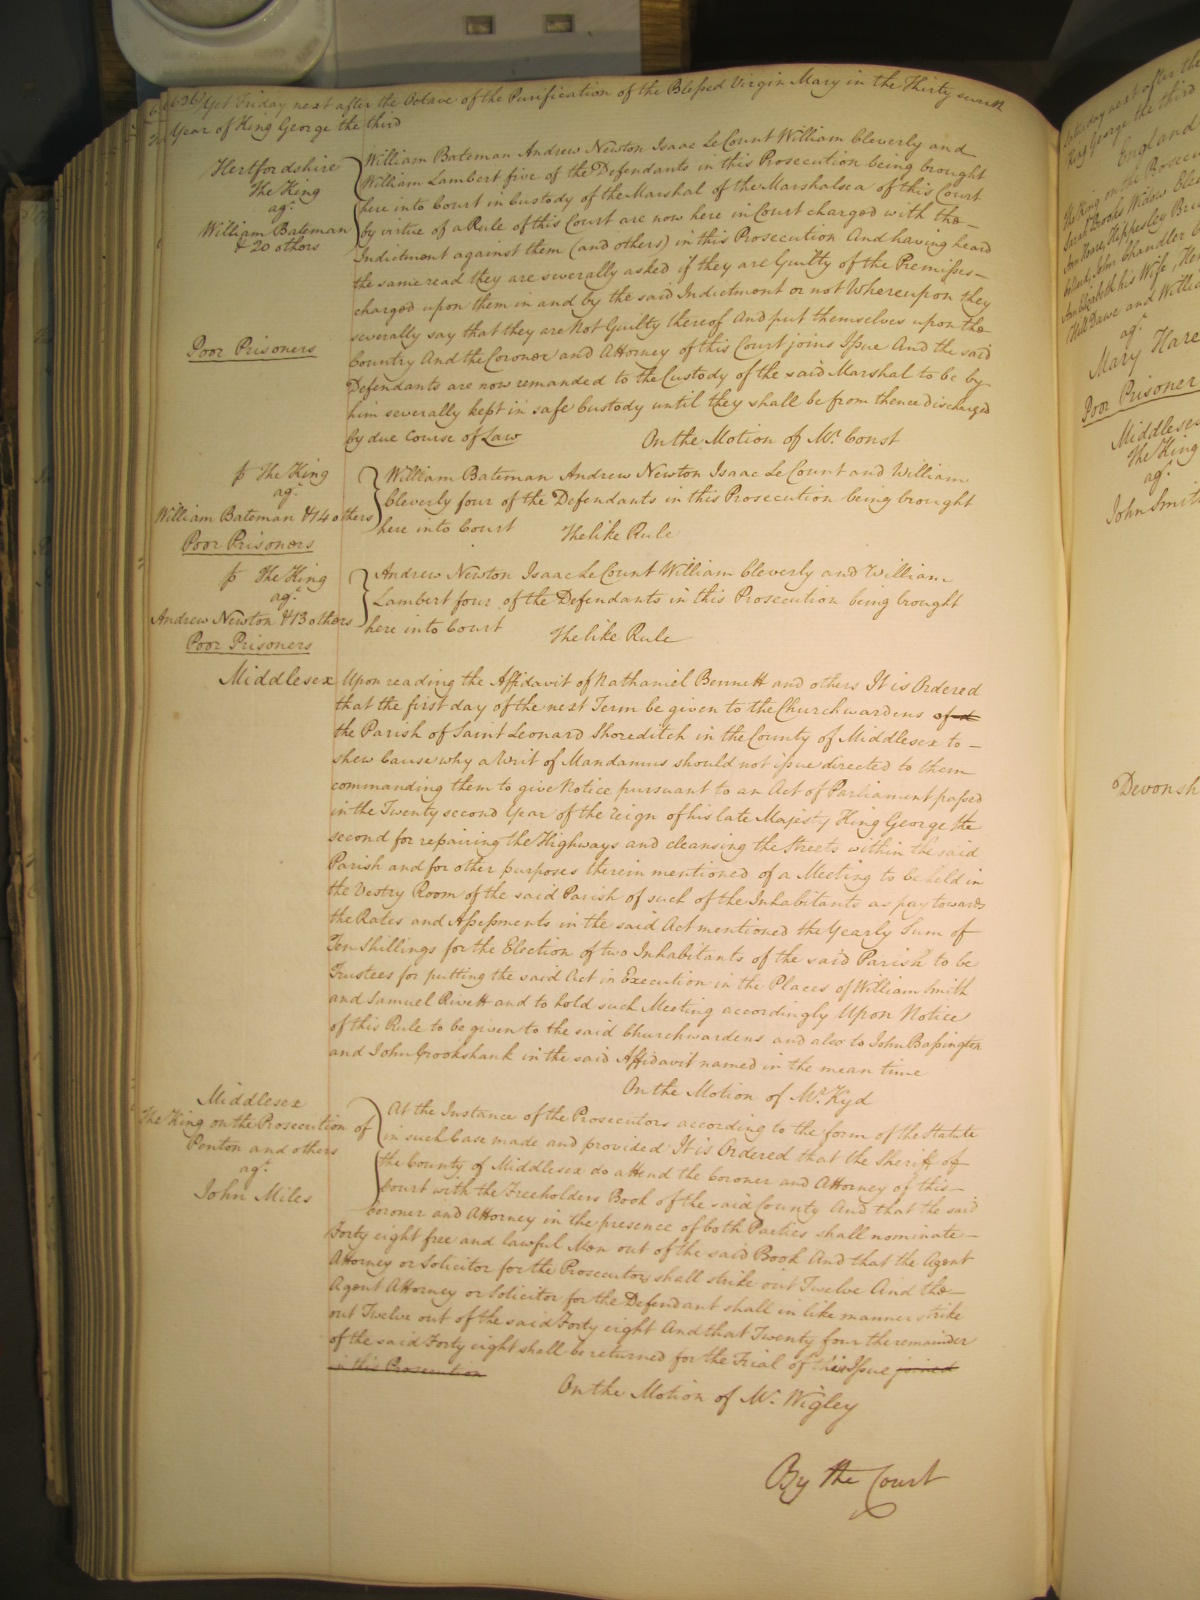 636 Yet Friday next after the Octave of the Purification of the Blessed Virgin Mary in the Thirty seventh
Year of King George the third
Hertfordshire
The King
agt.
William Bateman
& 20 others
William Bateman Andrew Newton Isaac Le Count William Cleverly and
William Lambert five of the Defendants in this Prosecution being brought
here into Court in Custody of the Marshal of the Marshalsea of this Court
by virtue of a Rule of this Court are now here in Court charged with the
Indictment against them (and others) in this Prosecution And having heard
the same read they are severally asked if they are Guilty of the Premisses
charged upon them in and by the said Indictment or not Whereupon they
severally say that they are Not Guilty thereof And put themselves upon the
Poor Prisoners
Country And the Coroner and Attorney of this Court joins Issue And the said
Defendants are now remanded to the Custody of the said Marshal to be by
him severally kept in safe Custody until they shall be from thence discharged
by due Course of Law
On the Motion of Mr. Const
The King
agt.
William Bateman & 14 others
Poor Prisoners
William Bateman Andrew Newton Isaac Le Count and William
Cleverly four of the Defendants in this Prosecution being brought
here into Court The like Rule
The King
agt.
Andrew Newton & 13 others
Poor Prisoners
Andrew Newton Isaac Le Count William Cleverly and William
Lambert four of the Defendants in this Prosecution being brought
here into Court The like Rule
Middlesex
Upon reading the Affidavit of Nathaniel Bennett and others It is Ordered
that the first day of the next Term be given to the Churchwardens of
the Parish of Saint Leonard Shoreditch in the County of Middlesex to
shew Cause why a Writ of Mandamus should not issue directed to them
commanding them to give Notice pursuant to an Act of Parliament passed
in the Twenty second Year of the reign of his late Majesty King George the
second for repairing the Highways and cleansing the Streets within the said
Parish and for other purposes therein mentioned of a Meeting to be held in
the Vestry Room of the said Parish of such of the Inhabitants as pay towards
the Rates and Assessments in the said Act mentioned the Yearly Sum of
Ten Shillings for the Election of two Inhabitants of the said Parish to be
Trustees for putting the said Act in Execution in the Places of William Smith
and Samuel Rivett and to hold such Meeting accordingly Upon Notice
of this Rule to be given to the said Churchwardens and also to John Bassington
and John Crookshank in the said Affidavit named in the mean time
On the Motion of Mr. Kyd
Middlesex
The King on the Prosecution of
Penton and others
agt.
John Miles
At the Instance of the Prosecutors according to the form of the Statute
in such Case made and provided It is Ordered that the Sheriff of
the County of Middlesex do attend the Coroner and Attorney of this
Court with the Freeholders Book of the said County And that the said
Coroner and Attorney in the presence of both Parties shall nominate
Forty eight free and lawful Men out of the said Book And that the Agent
Attorney or Solicitor for the Prosecutors shall strike out Twelve And the
Agent Attorney or Solicitor for the Defendant shall in like manner strike
out Twelve out of the said Forty eight And that Twenty four the remainder
of the said Forty eight shall be returned for the Trial of this Issue joined
in this Prosecution
On the Motion of Mr. Wigley
By the Court
Saturday next after the
King George the third
England
The King on the Prosecu
Sarah Brooks Widow
Ann Hare, Hippesley
John Chandler
Elizabeth his Wife
and Willia
agt.
Mary Hare
Poor Prisoner
Middlesex
The King
agt.
John Smith
Devonsh